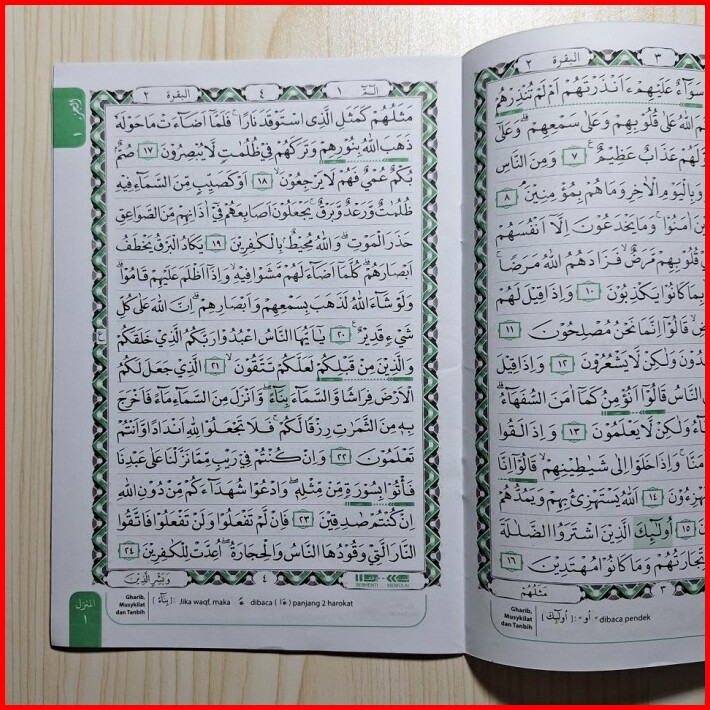 ٣ البقرة ٢
سَوَآءٌ عَلَيْهِمْ ءَاَنْذَرْتَهُمْ اَمْ لَمْ تُنْذِرْهُمْ
مَ اللّٰهُ عَلٰى قُلُوْبِهِمْ وَعَلٰى سَمْعِهِمْ ۗ وَعَلٰٓى
وَّلَهُمْ عَذَابٌ عَظِيْمٌ ࣖ ٧ وَمِنَ النَّاسِ
وَبِالْيَوْمِ الْاٰخِرِ وَمَا هُمْ بِمُؤْمِنِيْنَۘ ٨
يْنَ اٰمَنُوْا ۚ وَمَا يَخْدَعُوْنَ اِلَّآ اَنْفُسَهُمْ
قُلُوْبِهِمْ مَّرَضٌۙ فَزَادَهُمُ اللّٰهُ مَرَضًاۚ
بِمَا كَانُوْا يَكْذِبُوْنَ ١٠ وَاِذَا قِيْلَ لَهُمْ
ضِۙ قَالُوْٓا اِنَّمَا نَحْنُ مُصْلِحُوْنَ ١١
دُوْنَ وَلٰكِنْ لَّا يَشْعُرُوْنَ ١٢ وَاِذَا قِيْلَ
النَّاسُ قَالُوْٓا اَنُؤْمِنُ كَمَآ اٰمَنَ السُّفَهَاۤءُ ۗ
اۤءُ وَلٰكِنْ لَّا يَعْلَمُوْنَ ١٣ وَاِذَا لَقُوا
مَنَّا ۚ وَاِذَا خَلَوْا اِلٰى شَيٰطِيْنِهِمْۙ قَالُوْٓا اِنَّا
هْزِءُوْنَ ١٤ اَللّٰهُ يَسْتَهْزِئُ بِهِمْ وَيَمُدُّهُمْ
نَ ١٥ اُولٰۤىِٕكَ الَّذِيْنَ اشْتَرَوُا الضَّلٰلَةَ
تِّجَارَتُهُمْ وَمَا كَانُوْا مُهْتَدِيْنَ ١٦
٣ مَثَلُهُمْ
Gharib, Musykilat dan Tanbih
[ اُولٰۤىِٕكَ ] : اُو = اُ dibaca pendek
الۤمّۤ ١ ٤ البقرة ٢
الجزء ١
مَثَلُهُمْ كَمَثَلِ الَّذِى اسْتَوْقَدَ نَارًا ۚ فَلَمَّآ اَضَاۤءَتْ مَا حَوْلَهٗ
ذَهَبَ اللّٰهُ بِنُوْرِهِمْ وَتَرَكَهُمْ فِيْ ظُلُمٰتٍ لَّا يُبْصِرُوْنَ ١٧ صُمٌّۢ
بُكْمٌ عُمْيٌ فَهُمْ لَا يَرْجِعُوْنَۙ ١٨ اَوْ كَصَيِّبٍ مِّنَ السَّمَاۤءِ فِيْهِ
ظُلُمٰتٌ وَّرَعْدٌ وَّبَرْقٌۚ يَجْعَلُوْنَ اَصَابِعَهُمْ فِيْٓ اٰذَانِهِمْ مِّنَ الصَّوَاعِقِ
حَذَرَ الْمَوْتِۗ وَاللّٰهُ مُحِيْطٌۢ بِالْكٰفِرِيْنَ ١٩ يَكَادُ الْبَرْقُ يَخْطَفُ
اَبْصَارَهُمْ ۗ كُلَّمَآ اَضَاۤءَ لَهُمْ مَّشَوْا فِيْهِ ۙ وَاِذَآ اَظْلَمَ عَلَيْهِمْ قَامُوْا ۗ
وَلَوْ شَاۤءَ اللّٰهُ لَذَهَبَ بِسَمْعِهِمْ وَاَبْصَارِهِمْ ۗ اِنَّ اللّٰهَ عَلٰى كُلِّ
شَيْءٍ قَدِيْرٌ ࣖ ٢٠ يٰٓاَيُّهَا النَّاسُ اعْبُدُوْا رَبَّكُمُ الَّذِيْ خَلَقَكُمْ
وَالَّذِيْنَ مِنْ قَبْلِكُمْ لَعَلَّكُمْ تَتَّقُوْنَۙ ٢١ الَّذِيْ جَعَلَ لَكُمُ
الْاَرْضَ فِرَاشًا وَّالسَّمَاۤءَ بِنَاۤءً ۖ وَّاَنْزَلَ مِنَ السَّمَاۤءِ مَاۤءً فَاَخْرَجَ
بِهٖ مِنَ الثَّمَرٰتِ رِزْقًا لَّكُمْ ۚ فَلَا تَجْعَلُوْا لِلّٰهِ اَنْدَادًا وَّاَنْتُمْ
تَعْلَمُوْنَ ٢٢ وَاِنْ كُنْتُمْ فِيْ رَيْبٍ مِّمَّا نَزَّلْنَا عَلٰى عَبْدِنَا
فَأْتُوْا بِسُوْرَةٍ مِّنْ مِّثْلِهٖ ۖ وَادْعُوْا شُهَدَاۤءَكُمْ مِّنْ دُوْنِ اللّٰهِ
اِنْ كُنْتُمْ صٰدِقِيْنَ ٢٣ فَاِنْ لَّمْ تَفْعَلُوْا وَلَنْ تَفْعَلُوْا فَاتَّقُوا
النَّارَ الَّتِيْ وَقُوْدُهَا النَّاسُ وَالْحِجَارَةُ ۖ اُعِدَّتْ لِلْكٰفِرِيْنَ ٢٤
ع
MEMULAI BERHENTI ٤ وَبَشِّرِ الَّذِيْنَ
المنزل ١
Gharib, Musykilat dan Tanbih
[ بِنَاۤءً ] : Jika waqf, maka ءً dibaca ( ءَا ) panjang 2 harokat